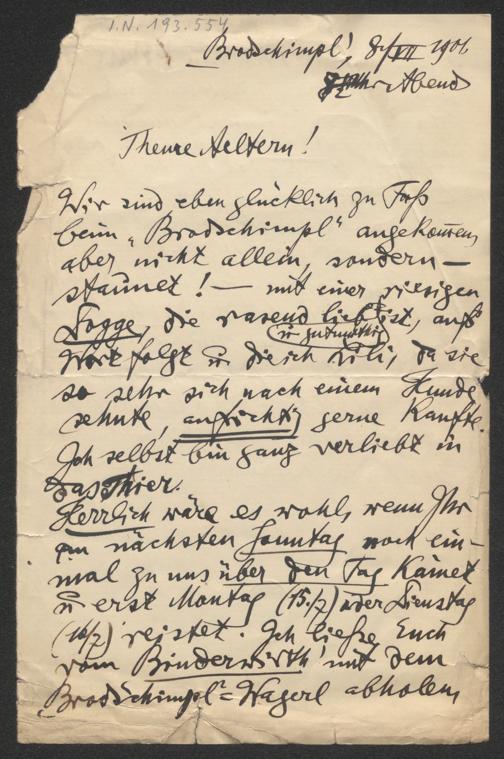 I.N. 193.554
Brodschimpl!, 8./VII 1901
Uhr Abend
Theure Aeltern!
Wir sind eben glücklich zu Fuß
beim „Brodschimpl" angekom̅en,
aber nicht allein, sondern –
staunet! – mit einer riesigen
Dogge, die rasend lieb ist, aufs
(u gutmüthig)
Wort folgt u. die ich Lili, da sie
so sehr sich nach einem Hunde
sehnte, aufrichtig gerne kaufte.
Ich selbst bin ganz verliebt in
das Thier.
Herrlich wäre es wohl, wenn Ihr
am nächsten Sonntag noch ein-
mal zu uns über den Tag kämet
u erst Montag (15./7) oder Dienstag
(16/7) reistet. Ich ließe Euch
vom Binderwirth mit dem
Brodschimpl-Wagerl abholen,